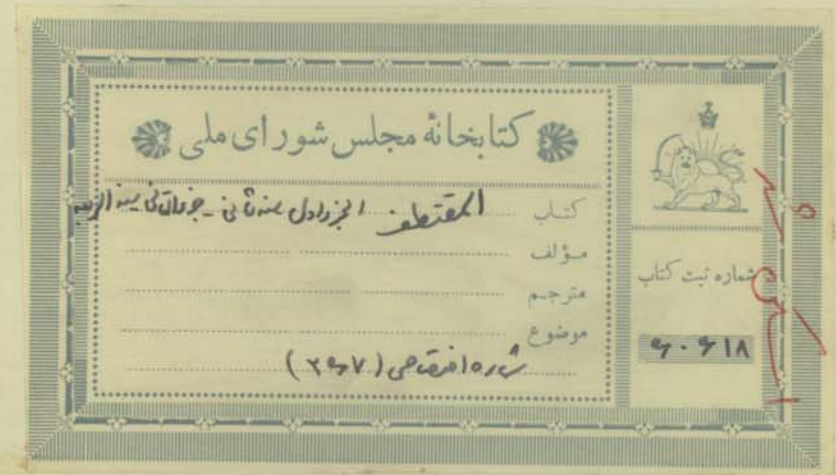 کتابخانهٔ مجلس شورای ملی
کتاب المقتطف الجزء الاول سنه ثانی - جزء الثانی سنه
مؤلف
مترجم
موضوع
شماره اختصاصی ( ۳۶۷ )
شماره ثبت کتاب
۶۰۶۱۸